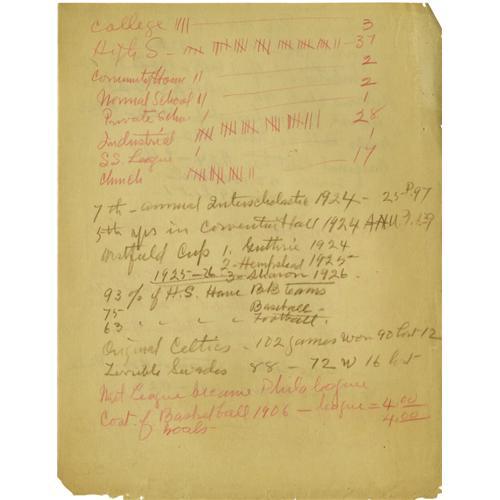 College |||| 3
High S - 37
Community House || 2
Normal School || 2
Private Schu | 1
Industrial 28
S.S. League | 1
Church 17
7th - annual Interscholastic 1924 - 25 P. 97
5th yrs in Convention Hall 1924
Cups 1. Guthrie 1924
2 - Hempstead 1925 -
1925-26 3 - Sharon 1926.
93 % of H.S. Have B.B. Teams
75 - " " " Baseball -
63 " " " Football.
Original Celtics - 102 games won 90 lost 12
Terrible Swedes 88 - 72 W 16 lost
Natl League became Phila league
Cost of Basketball 1906 - league = 4.00
goals - 4.00